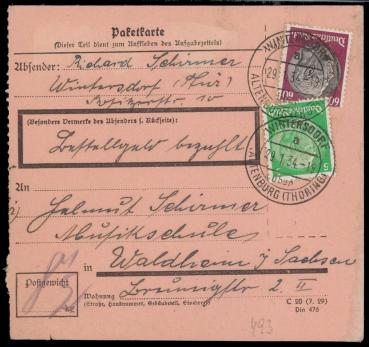 Paketkarte
(Dieser Teil dient zum Aufkleben des Aufgabezettels)
Absender: Richard Schirmer
Wintersdorf (Thür)
10
(Besondere Vermerke des Absenders s. Rückseite):
Bestellgeld bezahlt
An
Helmut Schirmer
Musikschule
in Waldheim i/ Sachsen
Breunigstr 2 II
Wohnung
(Straße, Hausnummer, Gebäudeteil, Stockwerk)
Postgewicht
kg
C 20 (7. 29)
Din 476
493
Deutsches Reich
60
WINTERSDORF
a
29.1.34
ALTENBURG (THÜRING)
5